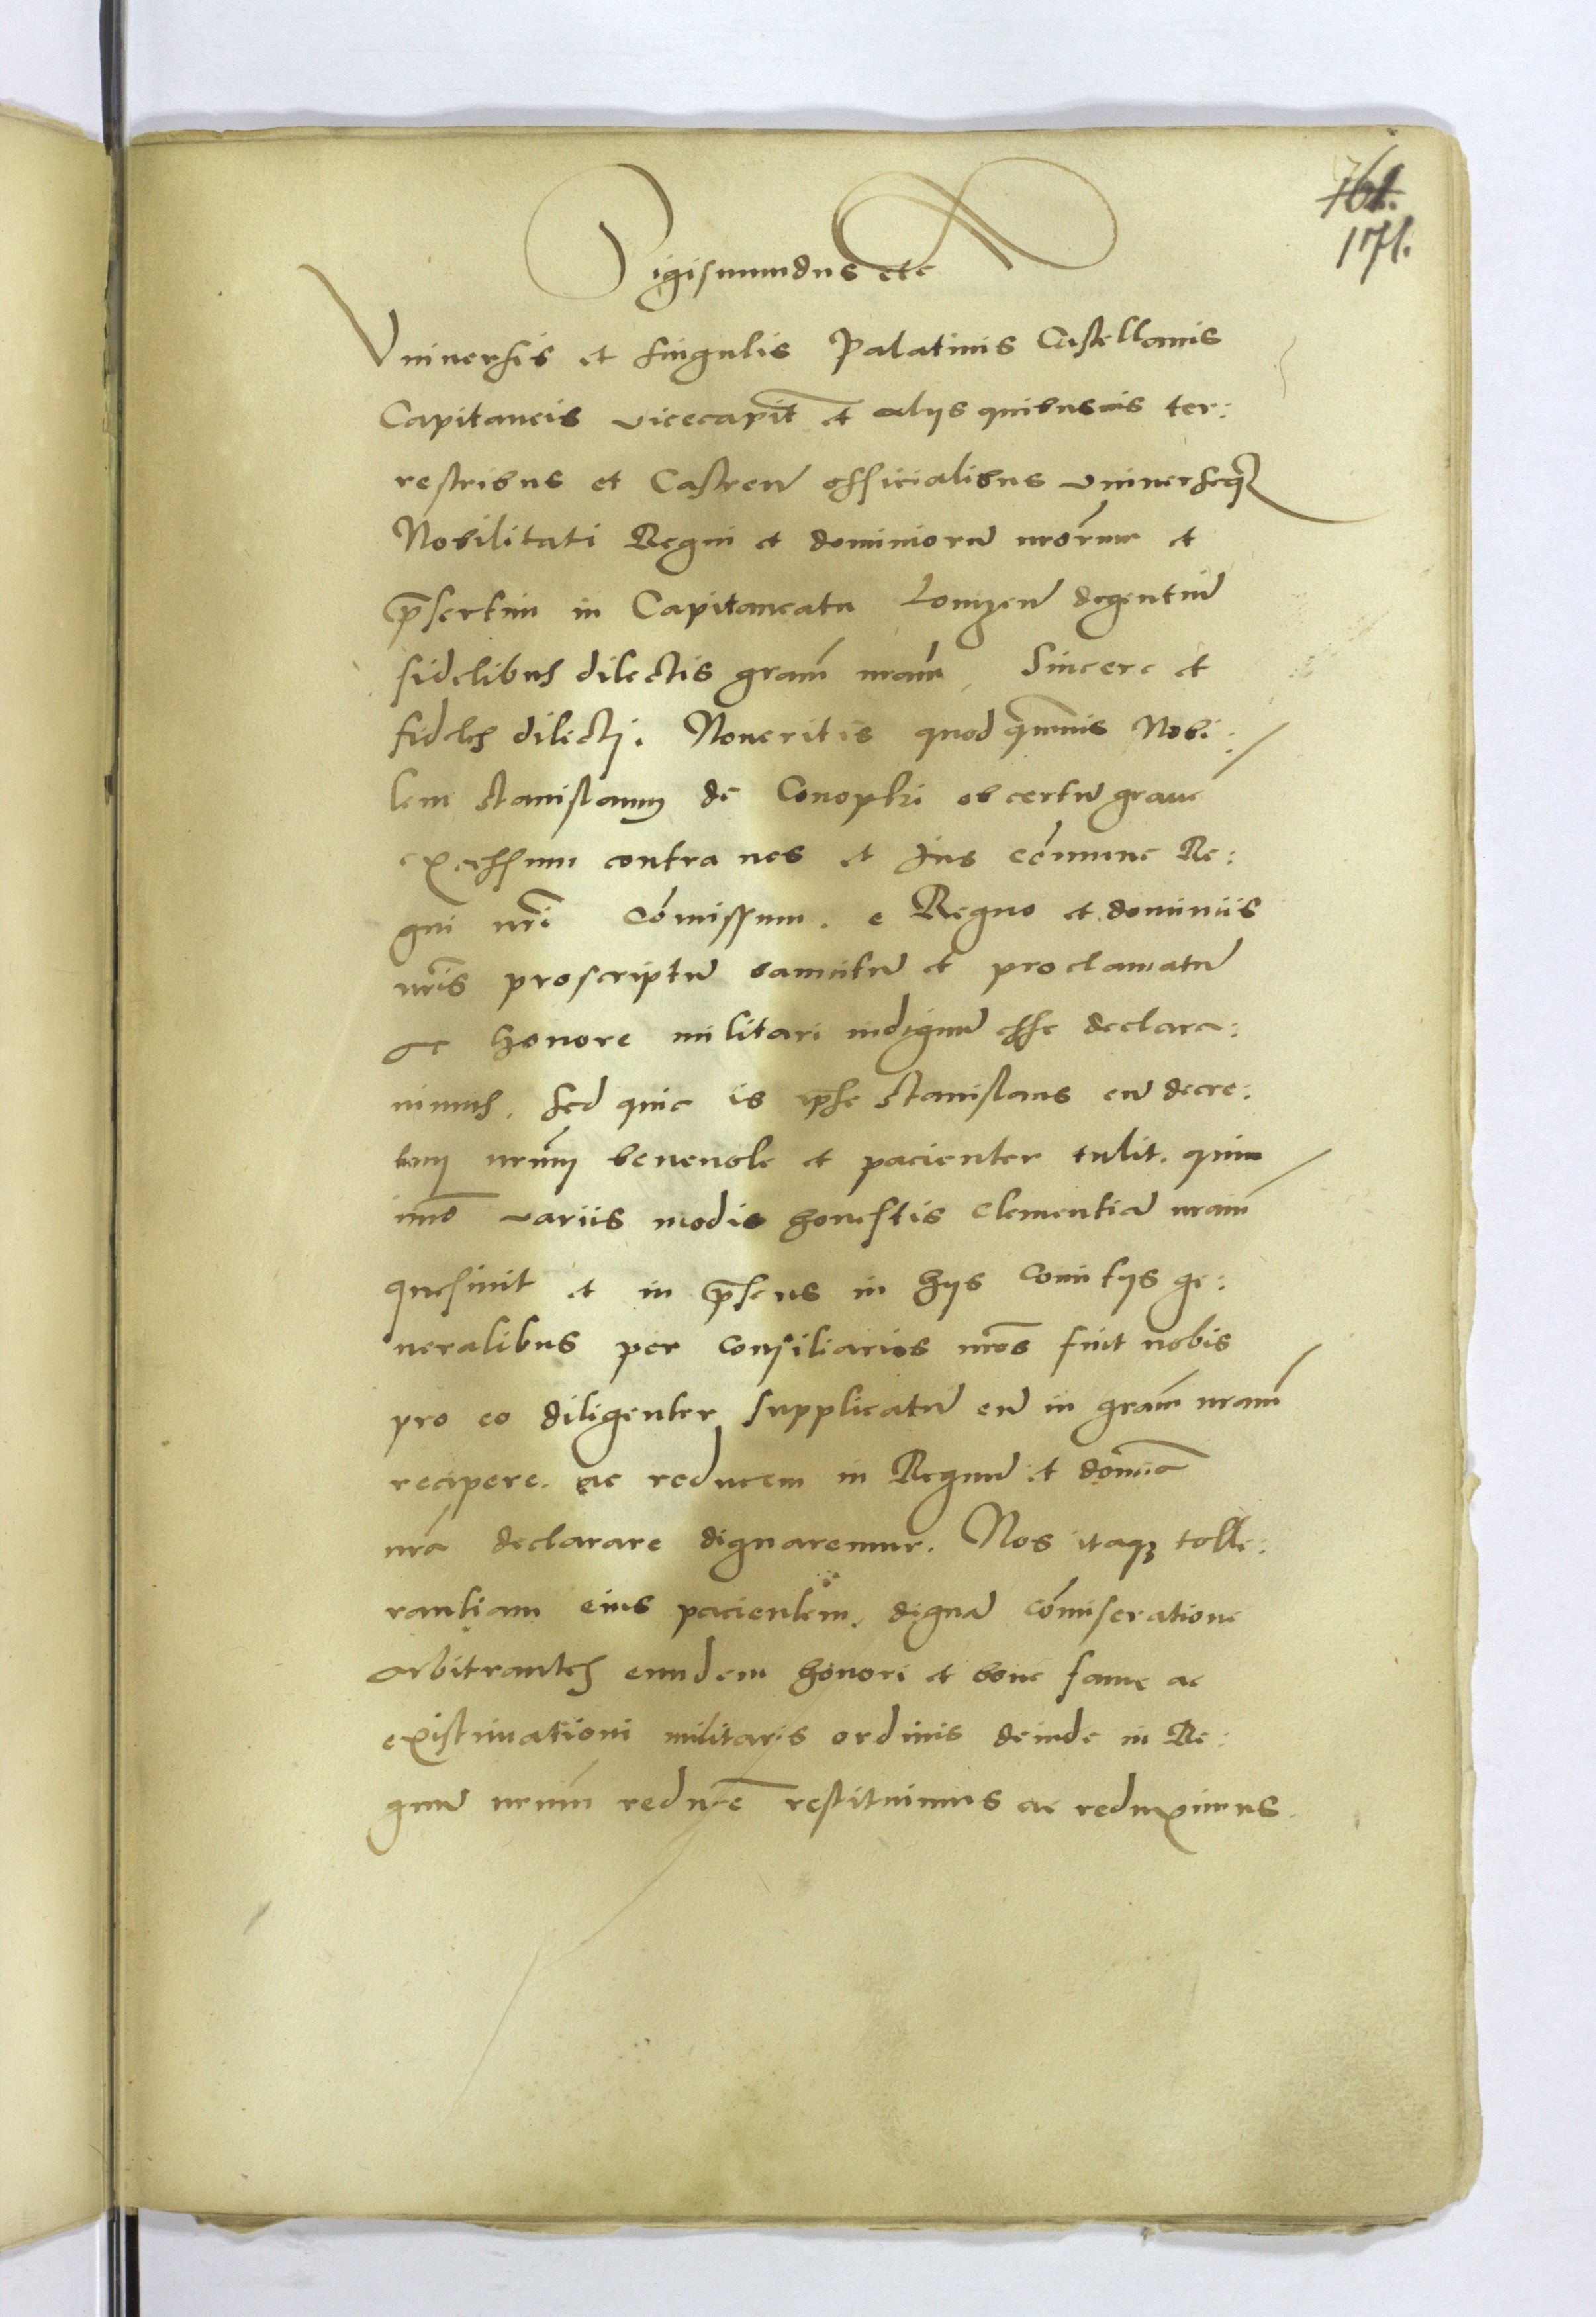 161.
171.
Sigismundus etc
Vniuersis et singulis Palatinis Castellanis
Capitaneis vicecapit et alijs quibusuis ter:
restribus et Castren officialibus vniuerseq3
Nobilitati Regni et dominiorũ nrorum et
p̃sertim in Capitaneatu Lomzen degentiũ
fidelibus dilectis gram̃ nram̃, Sincere et
fideles dilecti. Noueritis quod quamuis Nobi:
lem Stanislaum de Conopki ob certũ graue
excessum contra nos et Jus cõmune Re:
gni nri Cõmissum. e Regno et dominiis
nris proscriptũ bannitũ et proclamatũ
ac honore militari indignũ esse declara:
uimus. Sed quia is ipse Stanislaus eũ decre:
tum nrum beneuole et pacienter tulit. quin
imo variis modis honestis Clementiã nram
quesiuit et in p̃sens in hijs Comitijs ge:
neralibus per Consiliarios nros fuit nobis
pro eo diligenter supplicatũ eũ in gram̃ nram̃
recipere. ac reducem in Regnũ et domia
nra declarare dignaremur. Nos itaq3 tolle:
rantiam eius pacientem. dignã cõmiseratione
arbitrantes eundem honori et bone fame ac
existimationi militaris ordinis deinde in Re:
gnũ nrum reducẽ restituimus ac reduximus.